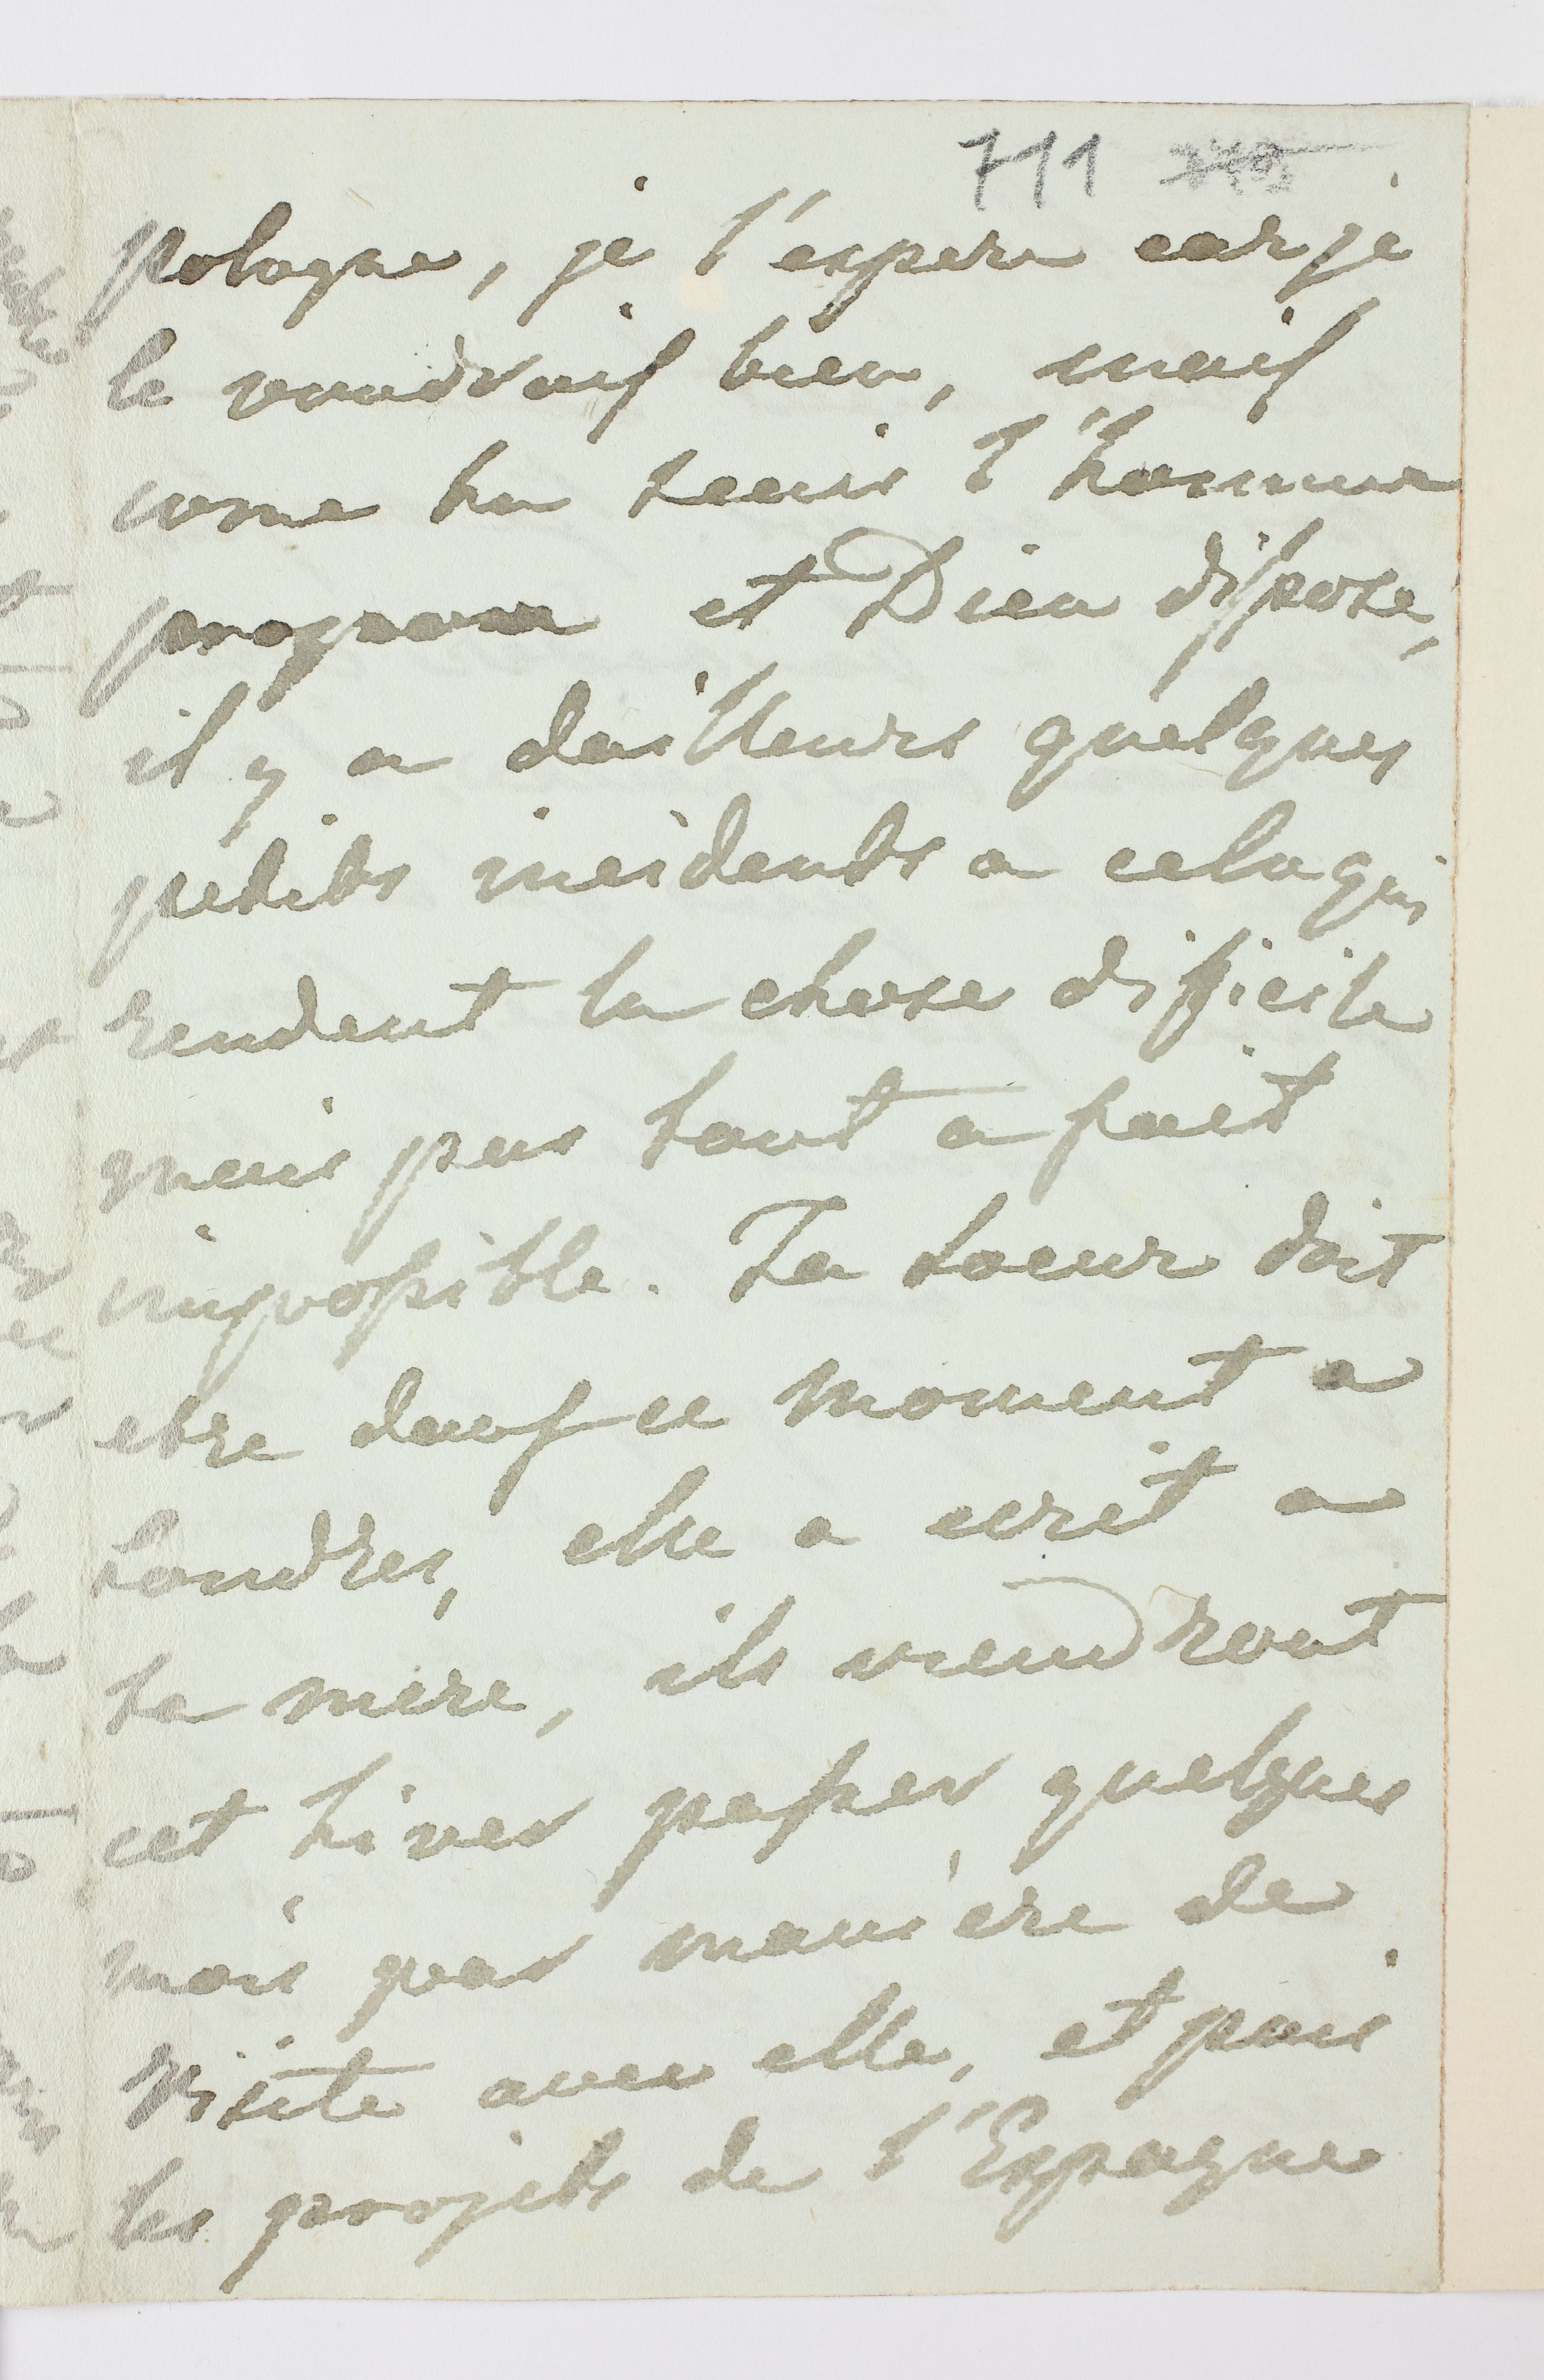 711
pologne, je l'espere car je
le voudrais bien, mais
come tu scais l'homme
propose et Dieu dispose,
il y a dailleurs quelques
petits incidents a cela qui
rendent la chose dificile
mais pas tout a fait
impossible. Ta soeur doit
etre dans ce moment a
Londres, elle a ecrit a
ta mere, ils viendront
cet hiver passer quelques
mois par maniere de
visite avec elle, et puis
les projets de l'Espagne